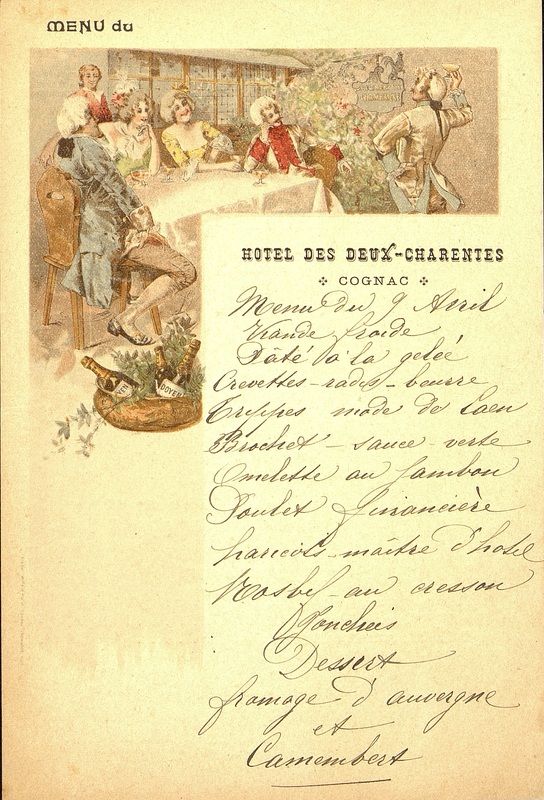 MENU du
HOTEL DES DEUX-CHARENTES
COGNAC
Menu du 9 Avril
Viande froide
Pâté à la gelée
Crevettes - radis - beurre
Trippes mode de Caen
Brochet - sauce verte
Omelette au Jambon
Poulet financière
haricots - maître d'hotel
Rosbif au cresson
Jonchées
Dessert
fromage d'auvergne
et
Camembert
DOYEN